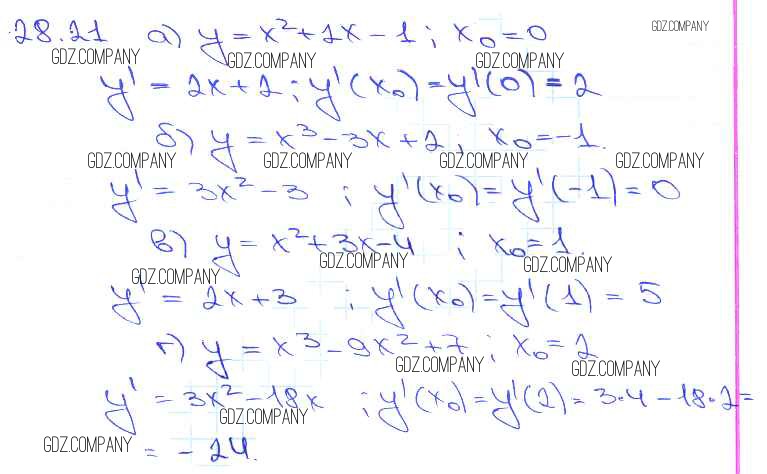 28.21 а) y = x² + 2x − 1 ; x₀ = 0 GDZ.COMPANY
GDZ.COMPANY GDZ.COMPANY GDZ.COMPANY
y' = 2x + 2 ; y'(x₀) = y'(0) = 2
б) y = x³ − 3x + 2, x₀ = −1.
GDZ.COMPANY GDZ.COMPANY GDZ.COMPANY GDZ.COMPANY
y' = 3x² − 3 ; y'(x₀) = y'(−1) = 0
в) y = x² + 3x − 4 ; x₀ = 1.
GDZ.COMPANY GDZ.COMPANY GDZ.COMPANY
y' = 2x + 3 ; y'(x₀) = y'(1) = 5
г) y = x³ − 9x² + 7 ; x₀ = 2
GDZ.COMPANY GDZ.COMPANY
y' = 3x² − 18x ; y'(x₀) = y'(2) = 3·4 − 18·2 =
GDZ.COMPANY
GDZ.COMPANY = − 24.